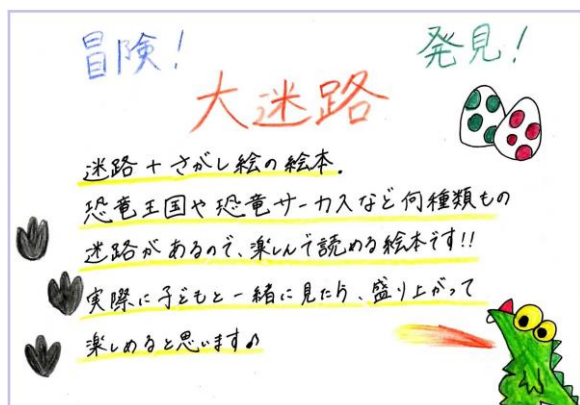 冒険！ 発見！
大迷路
迷路＋さがし絵の絵本．
恐竜王国や恐竜サーカスなど何種類もの
迷路があるので、楽しんで読める絵本です!!
実際に子どもと一緒に見たら、盛り上がって
楽しめると思います♪